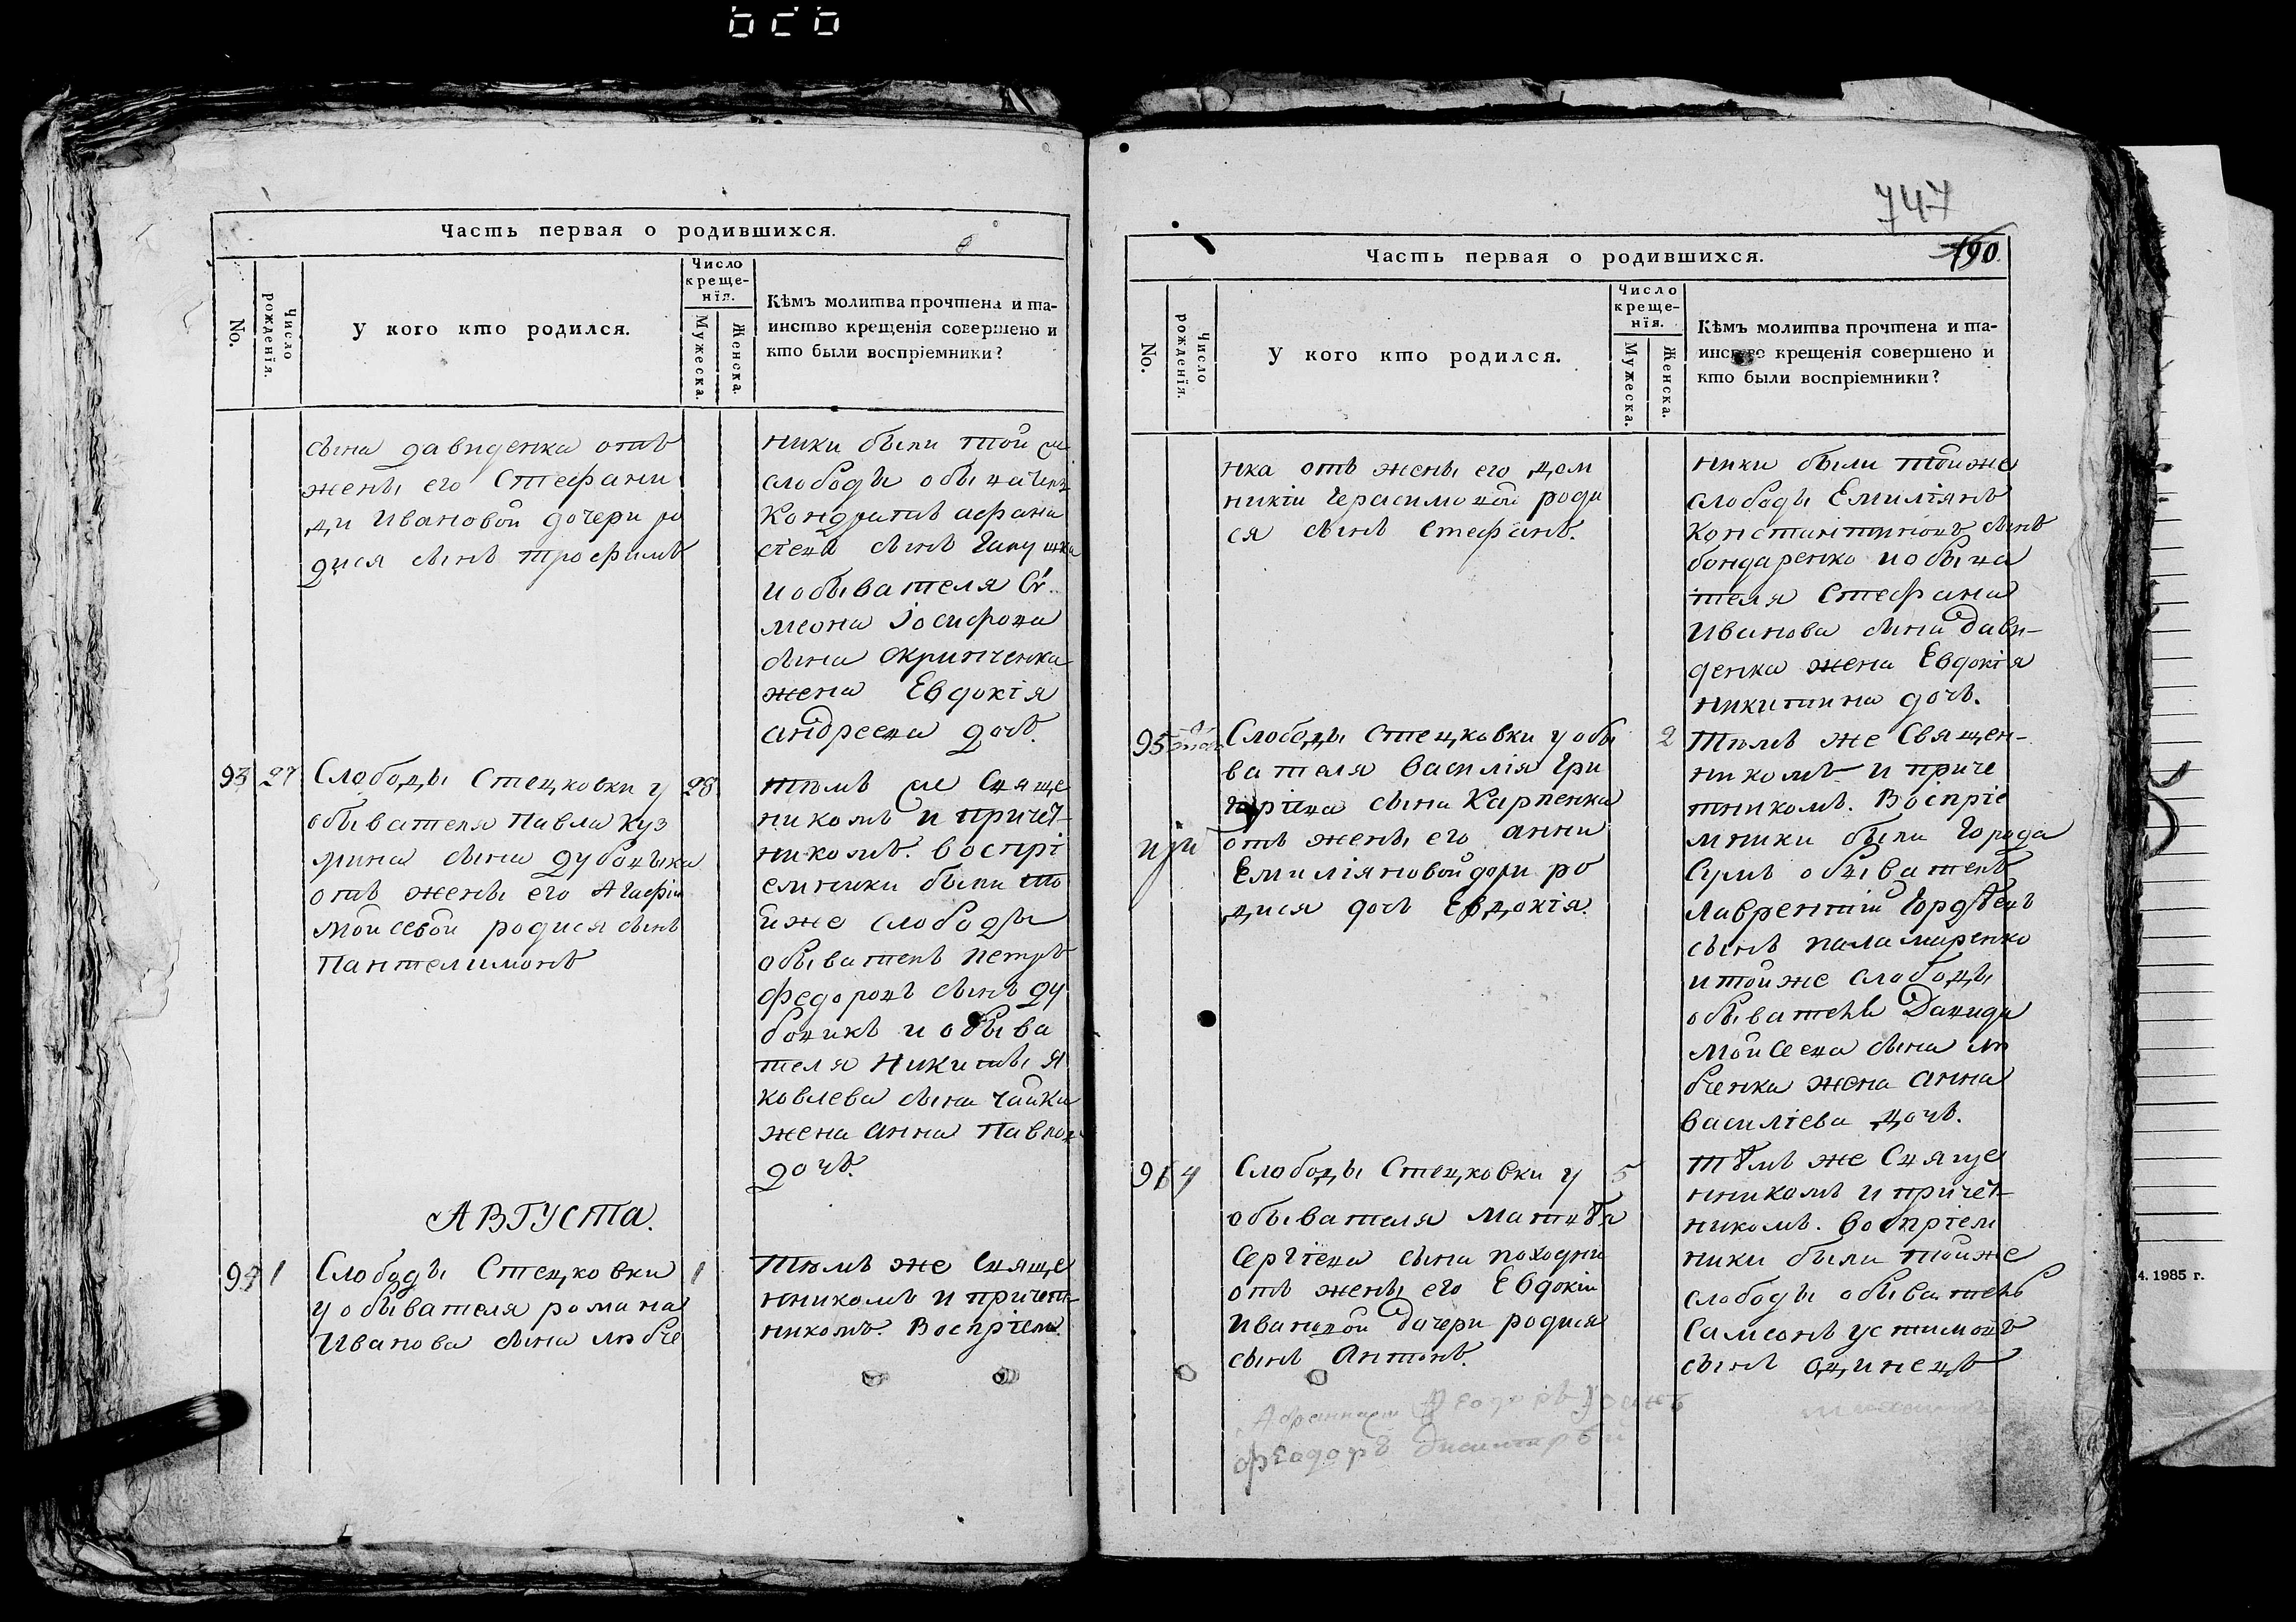 Часть первая о родившихся.
No.
Число рожденія.
у кого кто родился.
Число
креще-
нія.
Мужеска.
Женска.
Кѣмъ молитва прочтена и та-
инство крещенія совершено и
кто были воспріемники?
сына давиденка отъ
жены его Стефани
ди Ивановой дочери ро
дися сынъ трофимъ
ники были той же
слободы обывателъ
Кондратъ
сынъ
и обывателя Сѵ
меона Іосифова
сына скрипченка
жена Евдокія
андреева дочь.
93 27
Слободы Стецковки у
обывателя Павла Куз
мина сына дубовика
отъ жены его Агафіи
Мойсевой родися сынъ
Пантелимонъ
28
тѣмъ же Свяще
никомъ и причет
никомъ. воспрі
емники были то
йже слободы
обыватель петръ
федоровъ сынъ ду
бовикъ и обыва
теля Никиты Я
ковлева сына чайки
жена анна Павлов
дочь.
АВГУСТА.
94 1
Слободы Стецковки
у обывателя романа
Иванова сына любче
1
тѣмъ же Свяще
нникомъ и причет
никомъ. Воспріем
747
190.
Часть первая о родившихся.
No.
Число рожденія.
у кого кто родился.
Число
креще-
нія.
Мужеска.
Женска.
Кѣмъ молитва прочтена и та-
инство крещенія совершено и
кто были воспріемники?
нка отъ жены его дом
никіи Герасимовой роди
ся сынъ Стефанъ.
ники были тойже
слободы Емиліянъ
Константиновъ сынъ
бондаренко и обыва
теля Стефана
Иванова сына Дави-
денка жена Евдокія
никитина дочь.
95
Слободы Стецковки у обы
вателя Василія Гри
горіева сына Карпенка
отъ жены его анни
Емиліяновой дочри ро
дися дочь Евдокія.
2
Тѣмъ же Священ-
никомъ и приче
тникомъ. Воспріе
мники были города
Сумъ обыватель
Лаврентій Гордѣевъ
сынъ паламаренко
и тойже слободы
обыватель Давида
Мойсеева сына лю
бченка жена анна
василіева дочь.
96 4
Слободы Стецковки у
обывателя Матвѣя
Сергіева сына походни
отъ жены его Евдокіи
Ивановой Дочери родися
сынъ Антонъ.
5
тѣмъ же Свяще
нникомъ и причет-
никомъ. воспріем
ники были тойже
слободы обыватель
Самсонъ устимовъ
сынъ Одинецъ
феодоръ
4. 1985 г.